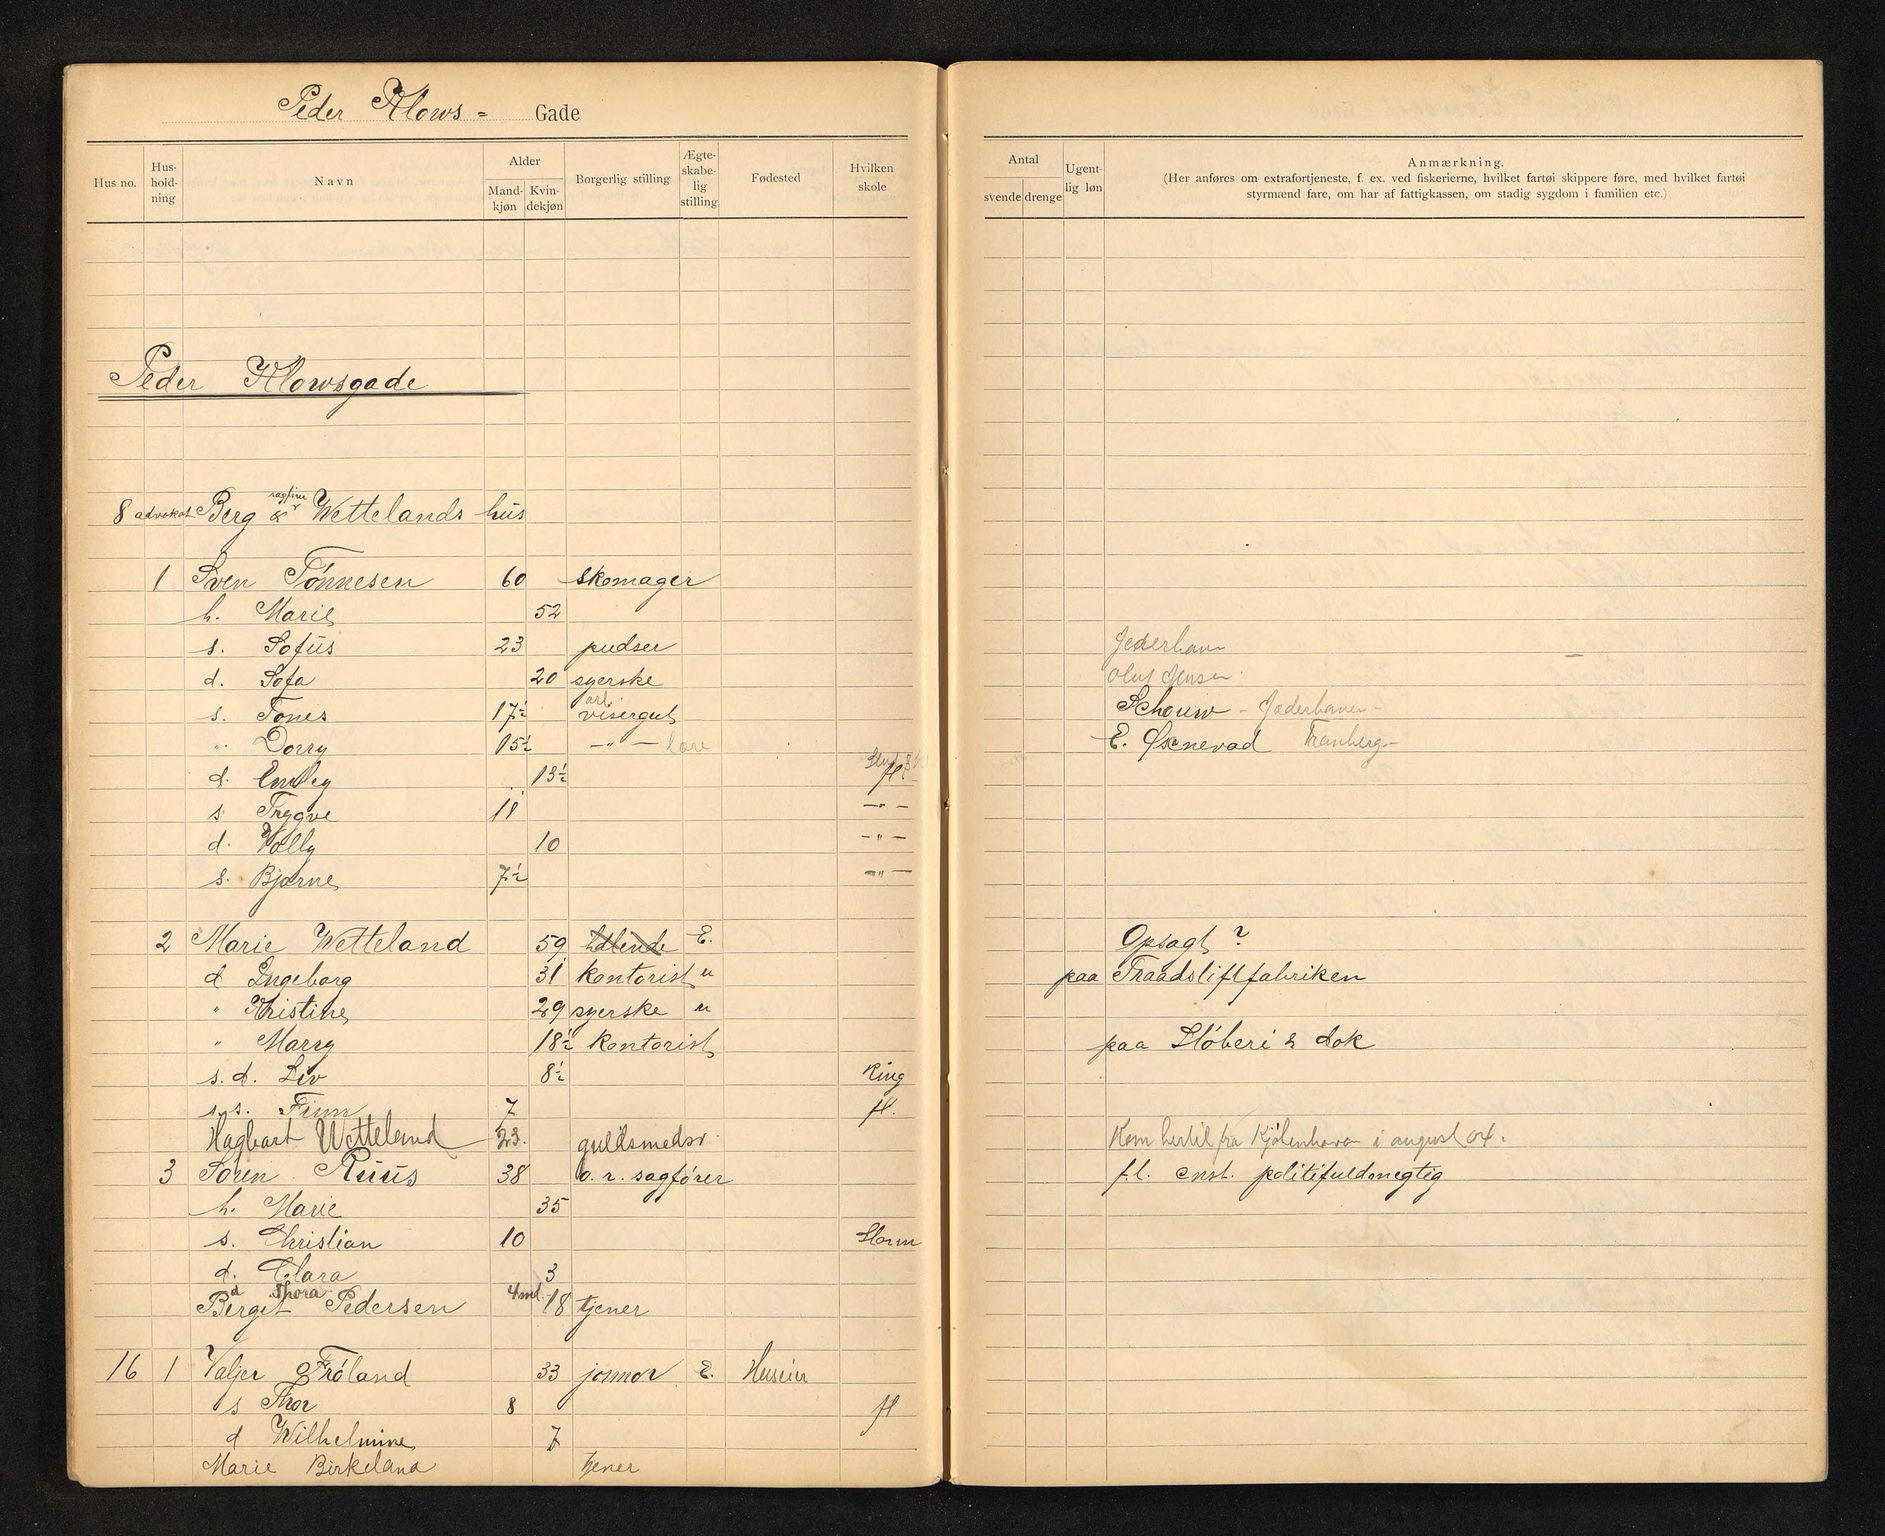 Peder Klows = Gade
Hus no. Hus-hold-ning Navn Alder Mand-kjøn Kvin-dekjøn Borgerlig stilling Ægte-skabe-lig stilling Fødested Hvilken skole
Antal svende drenge Ugent-lig løn Anmærkning.
(Her anføres om extrafortjeneste, f. ex. ved fiskerierne, hvilket fartøi skippere føre, med hvilket fartøi
styrmænd fare, om har af fattigkassen, om stadig sygdom i familien etc.)
Peder Klowsgade
8 advokat Berg & sagfører Wettelands hus
1 Sven Tönnesen 60 skomager
h. Marie 52
s. Sofus 23 pudser Jederhavn
d. Sofa 20 syerske Oluf Jensen
s. Tones 17½ arb. visergut Schouw - Jæderhaven -
" Dorry 15½ - " - lære E. Øxnevad Tranberg -
d. Emley 13½ fl.
s. Trygve 11 - " -
d. Wolly 10 - " -
s. Bjarne 7½ - " -
2 Marie Wetteland 59 hdlende E. Opsagt ?
d Ingeborg 31 kontorist u paa Traadstiftfabriken
" Kristine 29 syerske u
" Marry 18½ kontorist paa Stöberi & dok
s. d. Liv 8½ King
s. s. Finn 7 fl.
Hagbart Wetteland 23. guldsmedsv. Kom hertil fra Kjøbenhavn i august 04.
3 Sören Ruus 38 o. r. sagförer f.t. cnst. politifuldmegtig
h. Marie 35
s. Christian 10 Storm
d. Clara 3
d Thora 4 md.
Bergit Pedersen 18 tjener
16 1 Valjer Fröland 33 jormor E. Huseier
s Thor 8 fl
d Wilhelmine 7
Marie Birkeland tjener